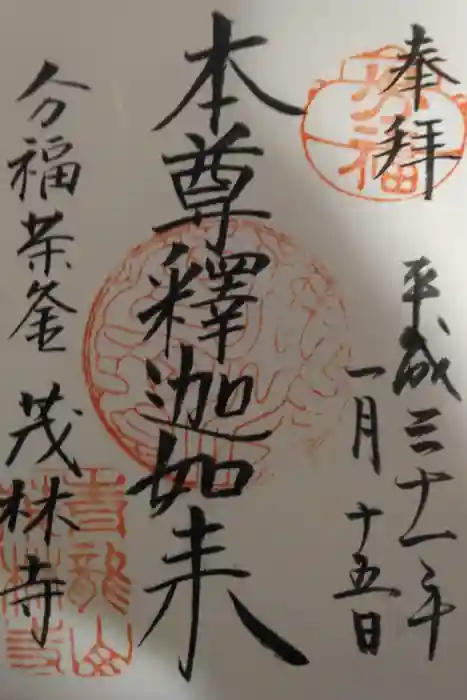 奉拝
平成三十一年
一月十五日
本尊釋迦如来
分福茶釜 茂林寺
分福
青龍山
茂林寺